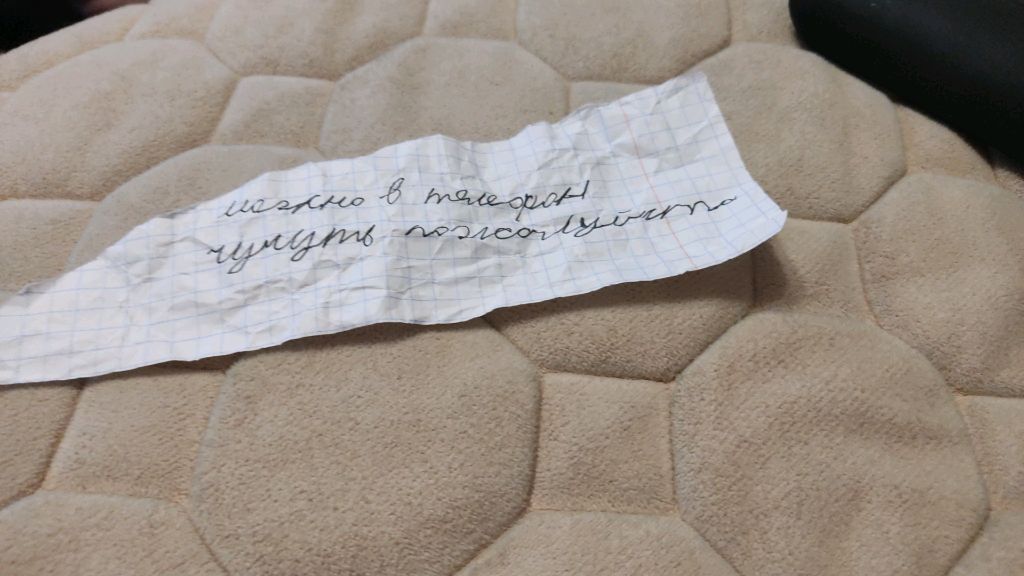 можно в телефон
чучуть пожалуйста